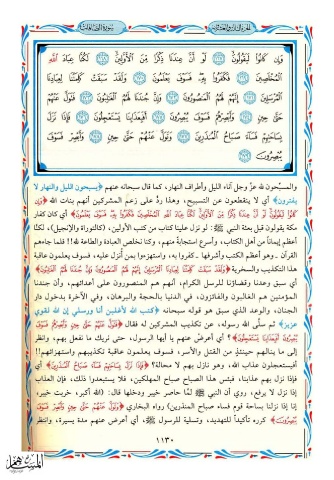 وَإِن كَانُوا لَيَقُولُونَ ۝ لَوْ أَنَّ عِندَنَا ذِكْرًا مِّنَ الْأَوَّلِينَ ۝ لَكُنَّا عِبَادَ اللَّهِ
الْمُخْلَصِينَ ۝ فَكَفَرُوا بِهِ فَسَوْفَ يَعْلَمُونَ ۝ وَلَقَدْ سَبَقَتْ كَلِمَتُنَا لِعِبَادِنَا
الْمُرْسَلِينَ ۝ إِنَّهُمْ لَهُمُ الْمَنصُورُونَ ۝ وَإِنَّ جُندَنَا لَهُمُ الْغَالِبُونَ ۝ فَتَوَلَّ عَنْهُمْ
حَتَّىٰ حِينٍ ۝ وَأَبْصِرْهُمْ فَسَوْفَ يُبْصِرُونَ ۝ أَفَبِعَذَابِنَا يَسْتَعْجِلُونَ ۝ فَإِذَا نَزَلَ
بِسَاحَتِهِمْ فَسَاءَ صَبَاحُ الْمُنذَرِينَ ۝ وَتَوَلَّ عَنْهُمْ حَتَّىٰ حِينٍ ۝ وَأَبْصِرْ فَسَوْفَ
يُبْصِرُونَ ۝
والمسبّحون لله عزَّ وجل آناء الليل وأطراف النهار، كما قال سبحانه عنهم ﴿يسبحون الليل والنهار لا
يفترون﴾ أي لا ينقطعون عن التسبيح، وهذا ردٌّ على زعم المشركين أنهم بنات الله ﴿وَإِن
كَانُوا لَيَقُولُونَ لَوْ أَنَّ عِندَنَا ذِكْرًا مِّنَ الْأَوَّلِينَ لَكُنَّا عِبَادَ اللَّهِ الْمُخْلَصِينَ فَكَفَرُوا بِهِ فَسَوْفَ يَعْلَمُونَ﴾ أي كان كفار
مكة يقولون قبل بعثة النبي ﷺ: لو نزل علينا كتاب من كتب الأولين، كالتوراة والإنجيل، لكنَّا
أعظم إيماناً من أهل الكتاب، وأسرع استجابةً منهم، وكنا نخلص العبادة والطاعة لله!! فلما جاءهم
القرآن ـ وهو أعظم الكتب وأشرفها ـ كفروا به، واستهزءوا بمن أُنزل عليه، فسوف يعلمون عاقبة
هذا التكذيب والسخرية ﴿وَلَقَدْ سَبَقَتْ كَلِمَتُنَا لِعِبَادِنَا الْمُرْسَلِينَ إِنَّهُمْ لَهُمُ الْمَنصُورُونَ وَإِنَّ جُندَنَا لَهُمُ الْغَالِبُونَ﴾
أي سبق وعدنا وقضاؤنا للرسل الكرام، أنهم هم المنصورون على أعدائهم، وأن جندنا
المؤمنين هم الغالبون والفائزون، في الدنيا بالحجة والبرهان، وفي الآخرة بدخول دار
الجنان، والوعد الذي سبق هو قوله سبحانه ﴿كتب الله لأغلبن أنا ورسلي إن الله لقوي
عزيز﴾ ثم سلَّى الله رسوله، عن تكذيب المشركين له فقال ﴿فَتَوَلَّ عَنْهُمْ حَتَّىٰ حِينٍ وَأَبْصِرْهُمْ فَسَوْفَ
يُبْصِرُونَ أَفَبِعَذَابِنَا يَسْتَعْجِلُونَ﴾؟ أي أعرض عنهم يا أيها الرسول، حتى نريك ما نفعل بهم، وانظر
إلى ما ينالهم حينئذٍ من القتل والأسر، فسوف يعلمون عاقبة تكذيبهم واستهزائهم!!
أفيستعجلون عذاب الله، وهو نازل بهم لا محالة؟ ﴿فَإِذَا نَزَلَ بِسَاحَتِهِمْ فَسَاءَ صَبَاحُ الْمُنذَرِينَ﴾ أي
فإذا نزل بهم عذابنا، فبئس هذا الصباح صباح المهلكين، فلا يستبعدوا ذلك، فإن العذاب
إذا نزل لا يرفع، روي أن النبي ﷺ لمَّا حاصر خيبر ودخلها قال: (الله أكبر، خربت خيبر،
إنا إذا نزلنا بساحة قوم فساء صباح المنذرين) رواه البخاري ﴿وَتَوَلَّ عَنْهُمْ حَتَّىٰ حِينٍ وَأَبْصِرْ فَسَوْفَ
يُبْصِرُونَ﴾ كرره تأكيداً للتهديد، وتسلية للرسول ﷺ، أي أعرض عنهم مدة يسيرة، وانظر
١١٣٠